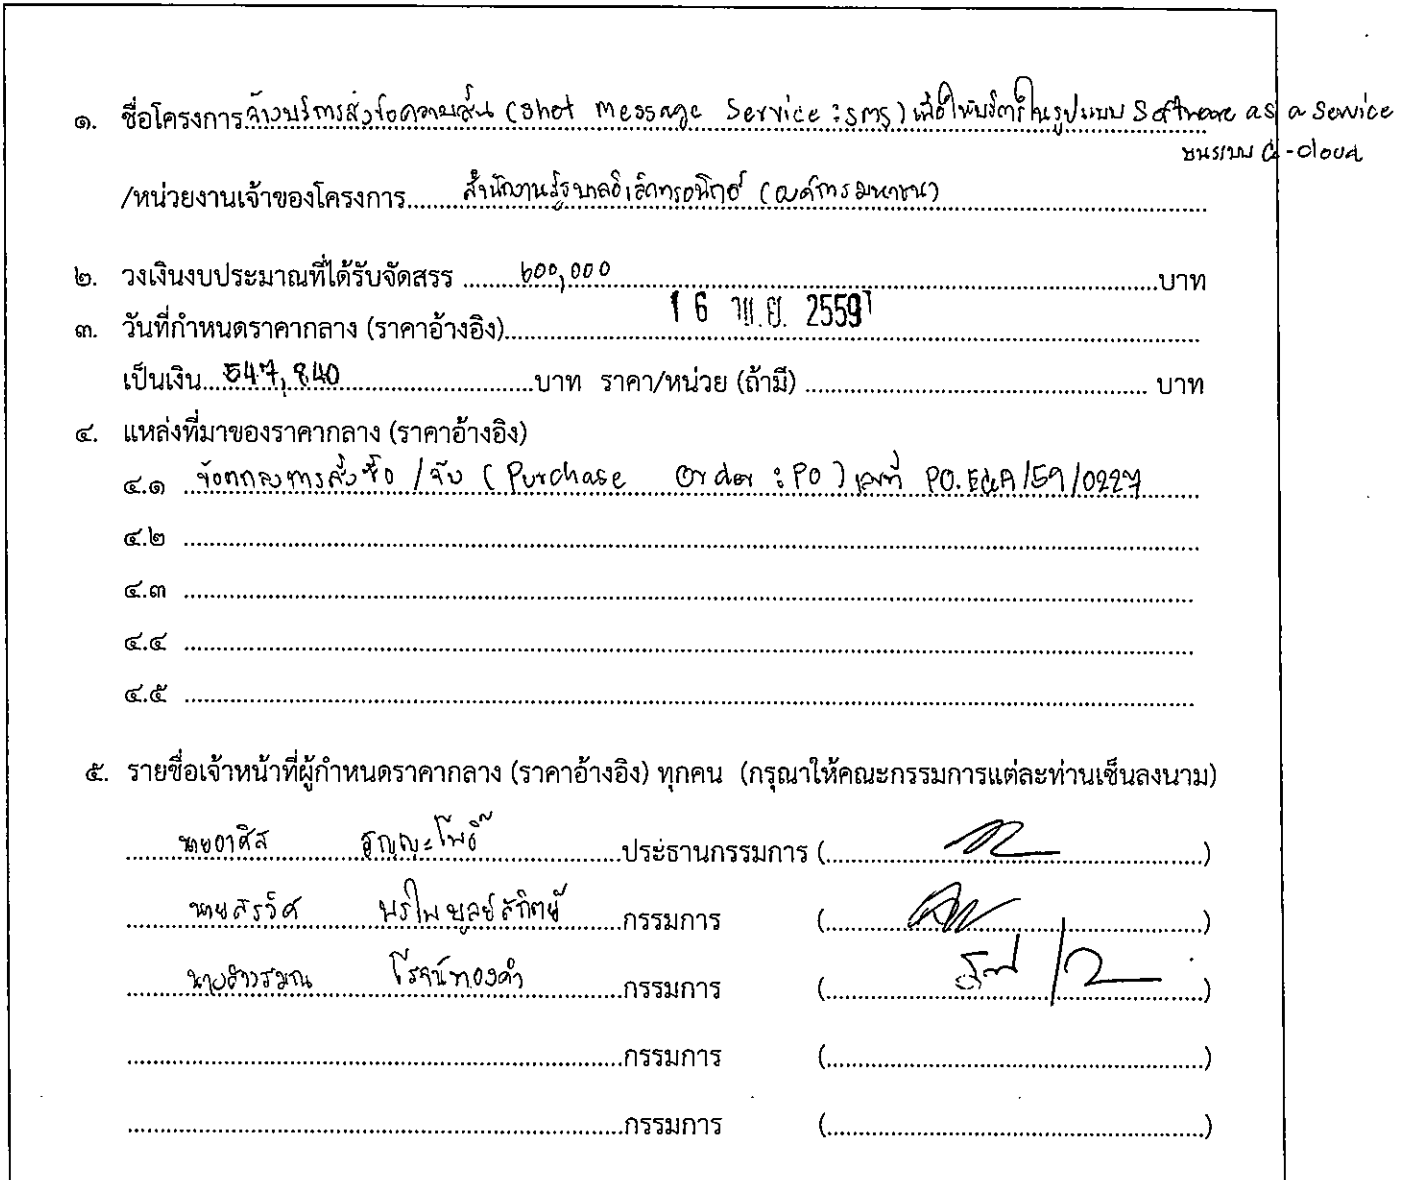 ๑. ชื่อโครงการ จ้างบริการส่งข้อความสั้น (Shot Message Service : SMS) เพื่อให้บริการในรูปแบบ Software as a Service
บนระบบ G-Cloud
/หน่วยงานเจ้าของโครงการ........สำนักงานรัฐบาลอิเล็กทรอนิกส์ (องค์การมหาชน)
๒. วงเงินงบประมาณที่ได้รับจัดสรร ........๖๐๐,๐๐๐........บาท
๓. วันที่กำหนดราคากลาง (ราคาอ้างอิง)........16 พ.ย. 2559
เป็นเงิน...547,840........บาท ราคา/หน่วย (ถ้ามี) ........ บาท
๔. แหล่งที่มาของราคากลาง (ราคาอ้างอิง)
๔.๑ ข้อตกลงการสั่งซื้อ /จ้าง (Purchase Order : PO) เลขที่ PO.EGA/59/0227
๔.๒ ........
๔.๓ ........
๔.๔ ........
๔.๕ ........
๕. รายชื่อเจ้าหน้าที่ผู้กำหนดราคากลาง (ราคาอ้างอิง) ทุกคน (กรุณาให้คณะกรรมการแต่ละท่านเซ็นลงนาม)
........ประธานกรรมการ (........)
........กรรมการ (........)
........กรรมการ (........)
........กรรมการ (........)
........กรรมการ (........)